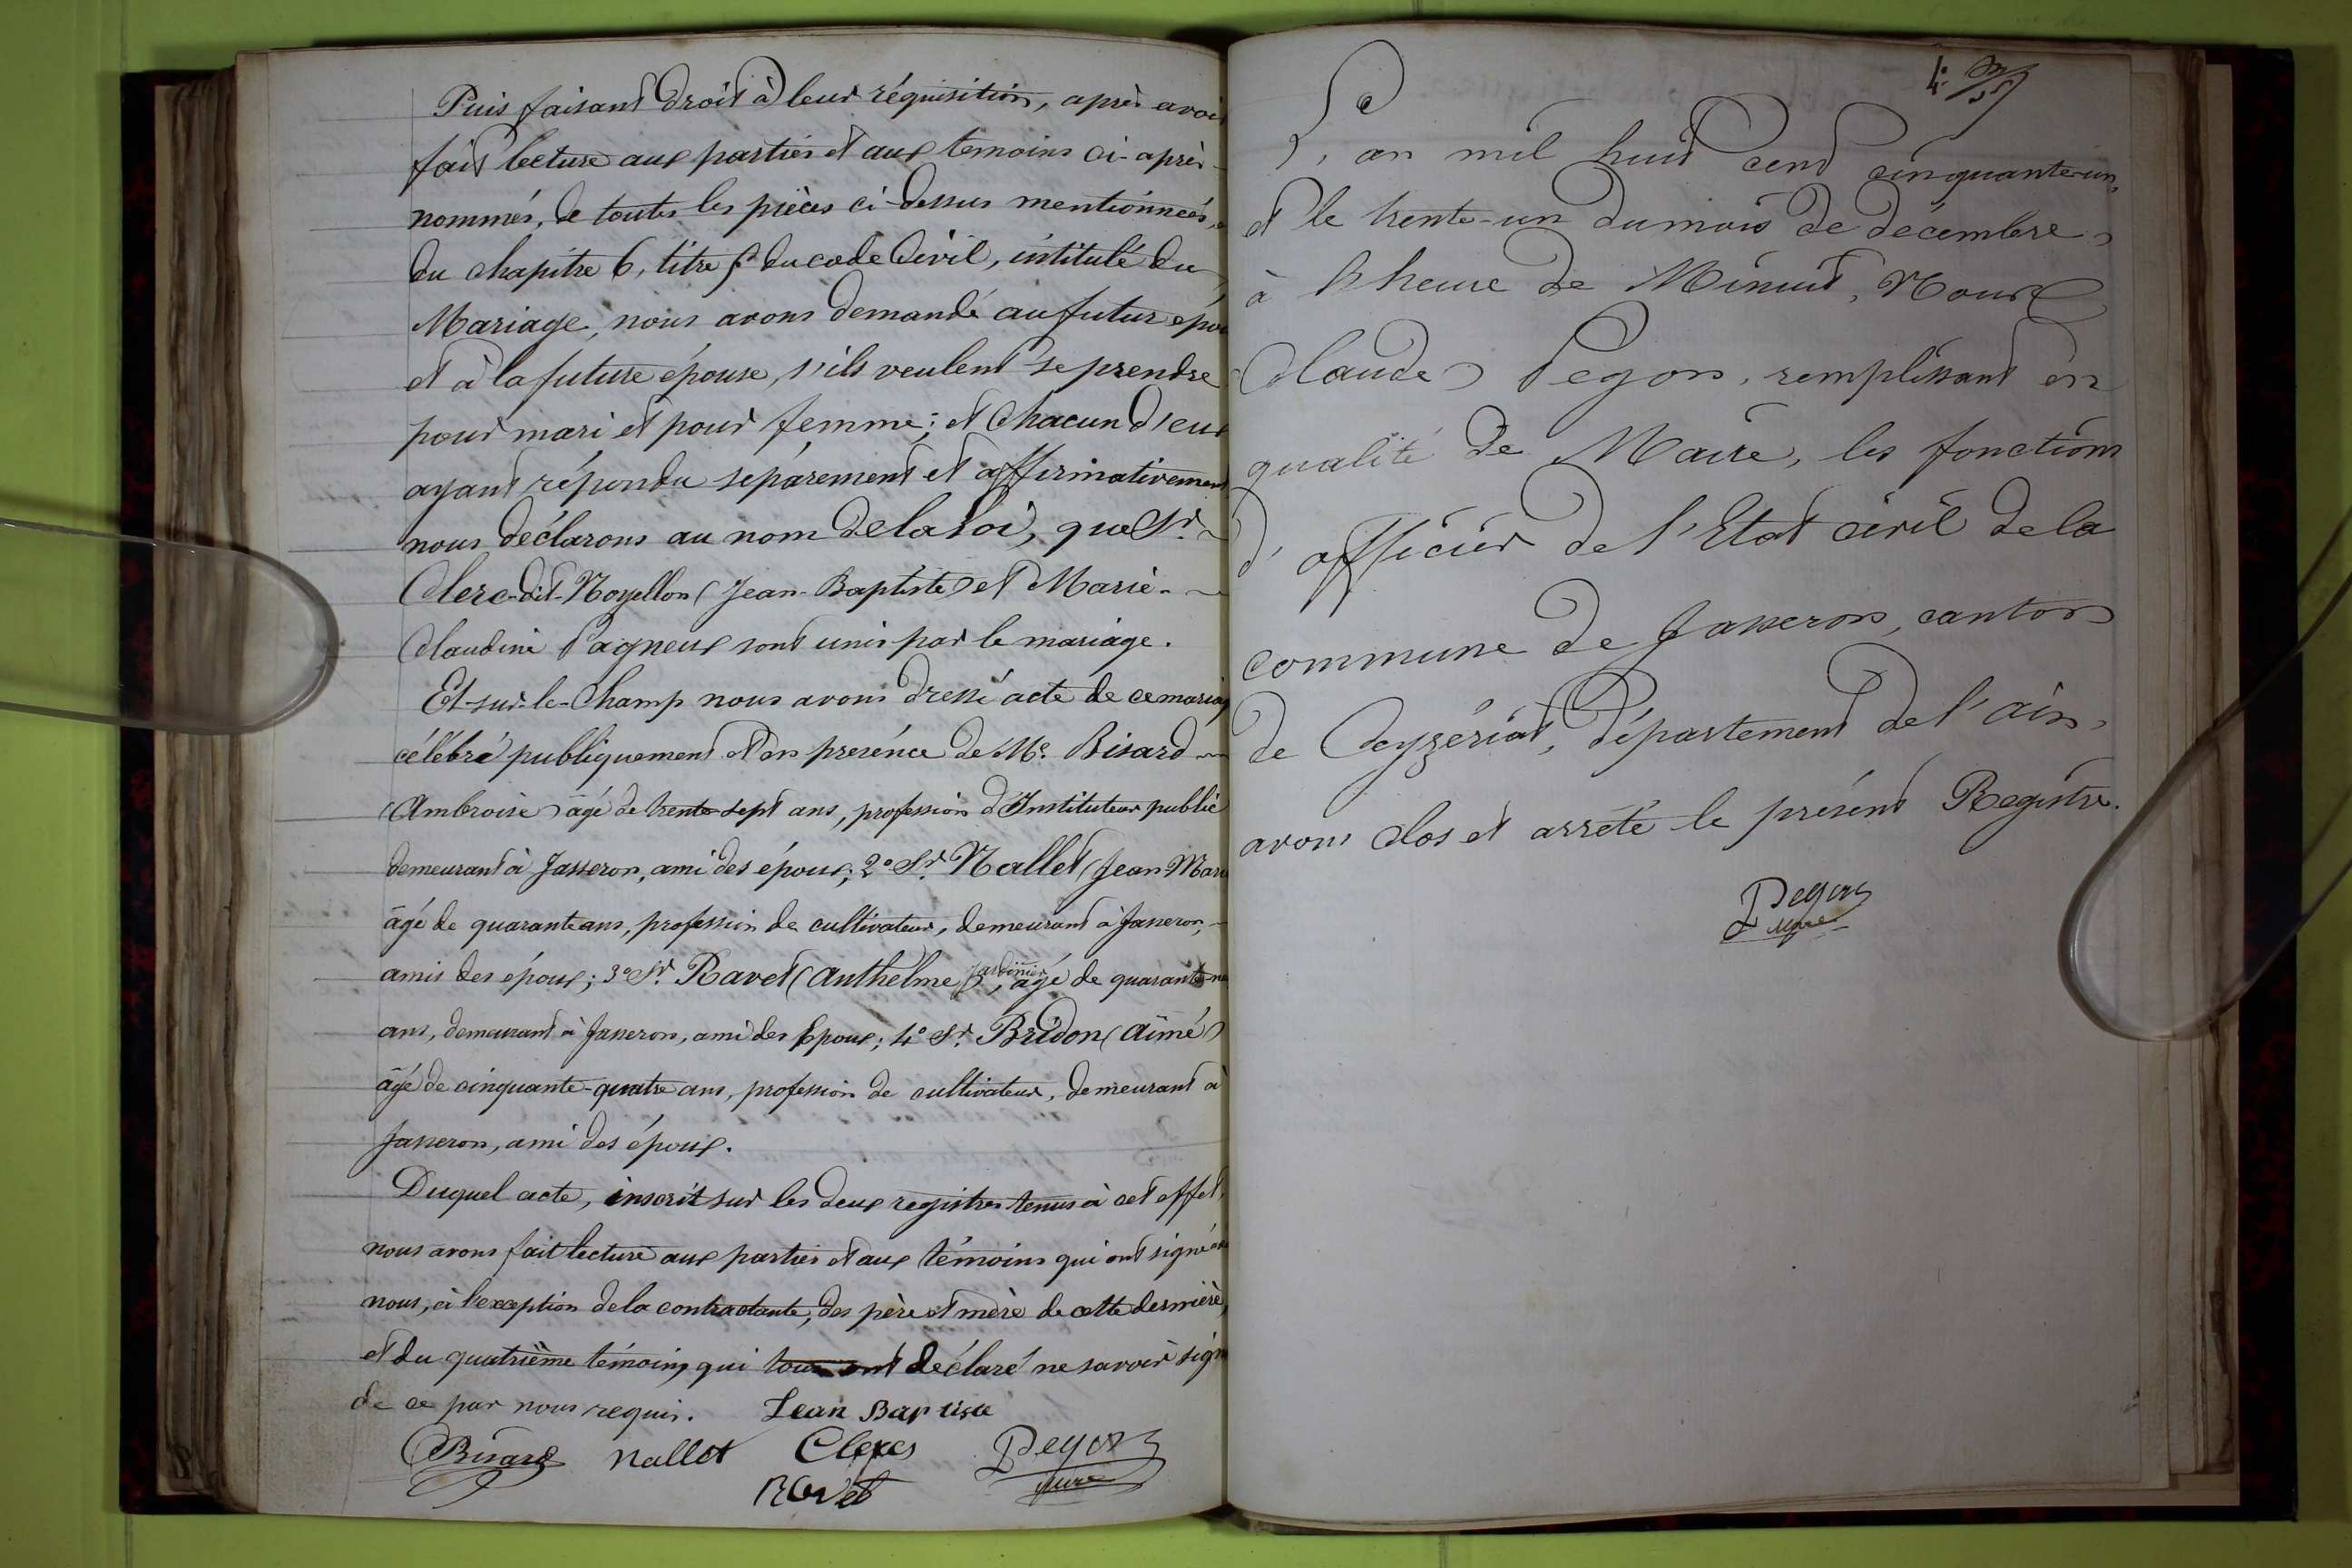 Puis faisant droit à leur réquisition, après avoir
fait lecture aux parties et aux temoins ci-après-
nommés, de toutes les pièces ci-dessus mentionnées, et
du chapitre 6, titre 5 du code Civil, intitulé du
Mariage, nous avons demandé au futur épou
et à la future épouse, s'ils veulent se prendre
pour mari et pour femme; et Chacun d'eux
ayant répondu séparement et affirmativement
nous déclarons au nom de la Loi, que Sr.
Clerc-dit-Noyellon (Jean-Baptiste) et Marie-
Claudine Pagneux sont unis par le mariage.
Et-sur-le-Champ nous avons dressé acte de ce mariag
célébré publiquement et en presénce de Mr. Bisard
(Ambroise) âgé de trente-sept ans, profession d'Instituteur public
demeurant à Jasseron, ami des époux; 2° Sr. Nallet (Jean-Marie
âgé de quarante ans, profession de cultivateur, demeurant à Jasseron,
amis des époux; 3° Sr. Ravet (Anthelme), jardinier, âgé de quarante-ne
ans, demeurant à Jasseron, ami des Epoux; 4° Sr. Bridon (Aimé)
âgé de cinquante-quatre ans, profession de cultivateur, demeurant à
Jasseron, ami des époux.
Duquel acte, inscrit sur les deux registres tenus à cet effet,
nous avons fait lecture aux parties et aux témoins qui ont signé avec
nous, à l'exception de la contractante, des père et mère de cette dernière,
et du quatrième témoin, qui tous ont déclaré ne savoir sign
de ce par nous requis. Jean Baptiste
Bisard Nallet Clerc Pegon
Ravet maire
4e
L'an mil huit cent cinquante-un,
et le trente-un du mois de décembre
à l'heure de Minuit, Nous
Claude Pegon, remplissant en
qualité de Maire, les fonctions
d'officier de l'Etat civil de la
commune de Jasseron, canton
de Ceyzériat, département de l'ain,
avons clos et arrêté le présent Registre.
Pegon
maire